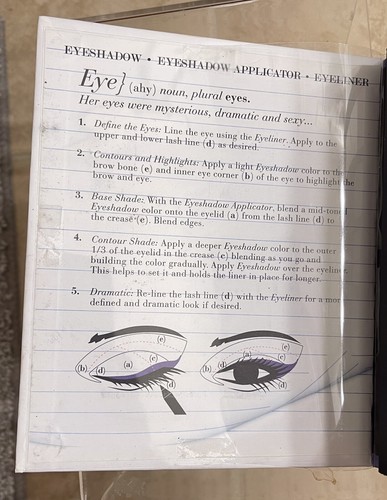 EYESHADOW • EYESHADOW APPLICATOR • EYELINER
Eye} (ahy) noun, plural eyes.
Her eyes were mysterious, dramatic and sexy...
1. Define the Eyes: Line the eye using the Eyeliner. Apply to the
upper and lower lash line (d) as desired.
2. Contours and Highlights: Apply a light Eyeshadow color to the
brow bone (e) and inner eye corner (b) of the eye to highlight the
brow and eye.
3. Base Shade: With the Eyeshadow Applicator, blend a mid-toned
Eyeshadow color onto the eyelid (a) from the lash line (d) to
the crease (c). Blend edges.
4. Contour Shade: Apply a deeper Eyeshadow color to the outer
1/3 of the eyelid in the crease (c) blending as you go and
building the color gradually. Apply Eyeshadow over the eyeliner.
This helps to set it and holds the liner in place for longer.
5. Dramatic: Re-line the lash line (d) with the Eyeliner for a mor
defined and dramatic look if desired.
(e)
(c)
(a)
(b) (d)
(d)
(e)
(c)
(a)
(b) (d)
(d)